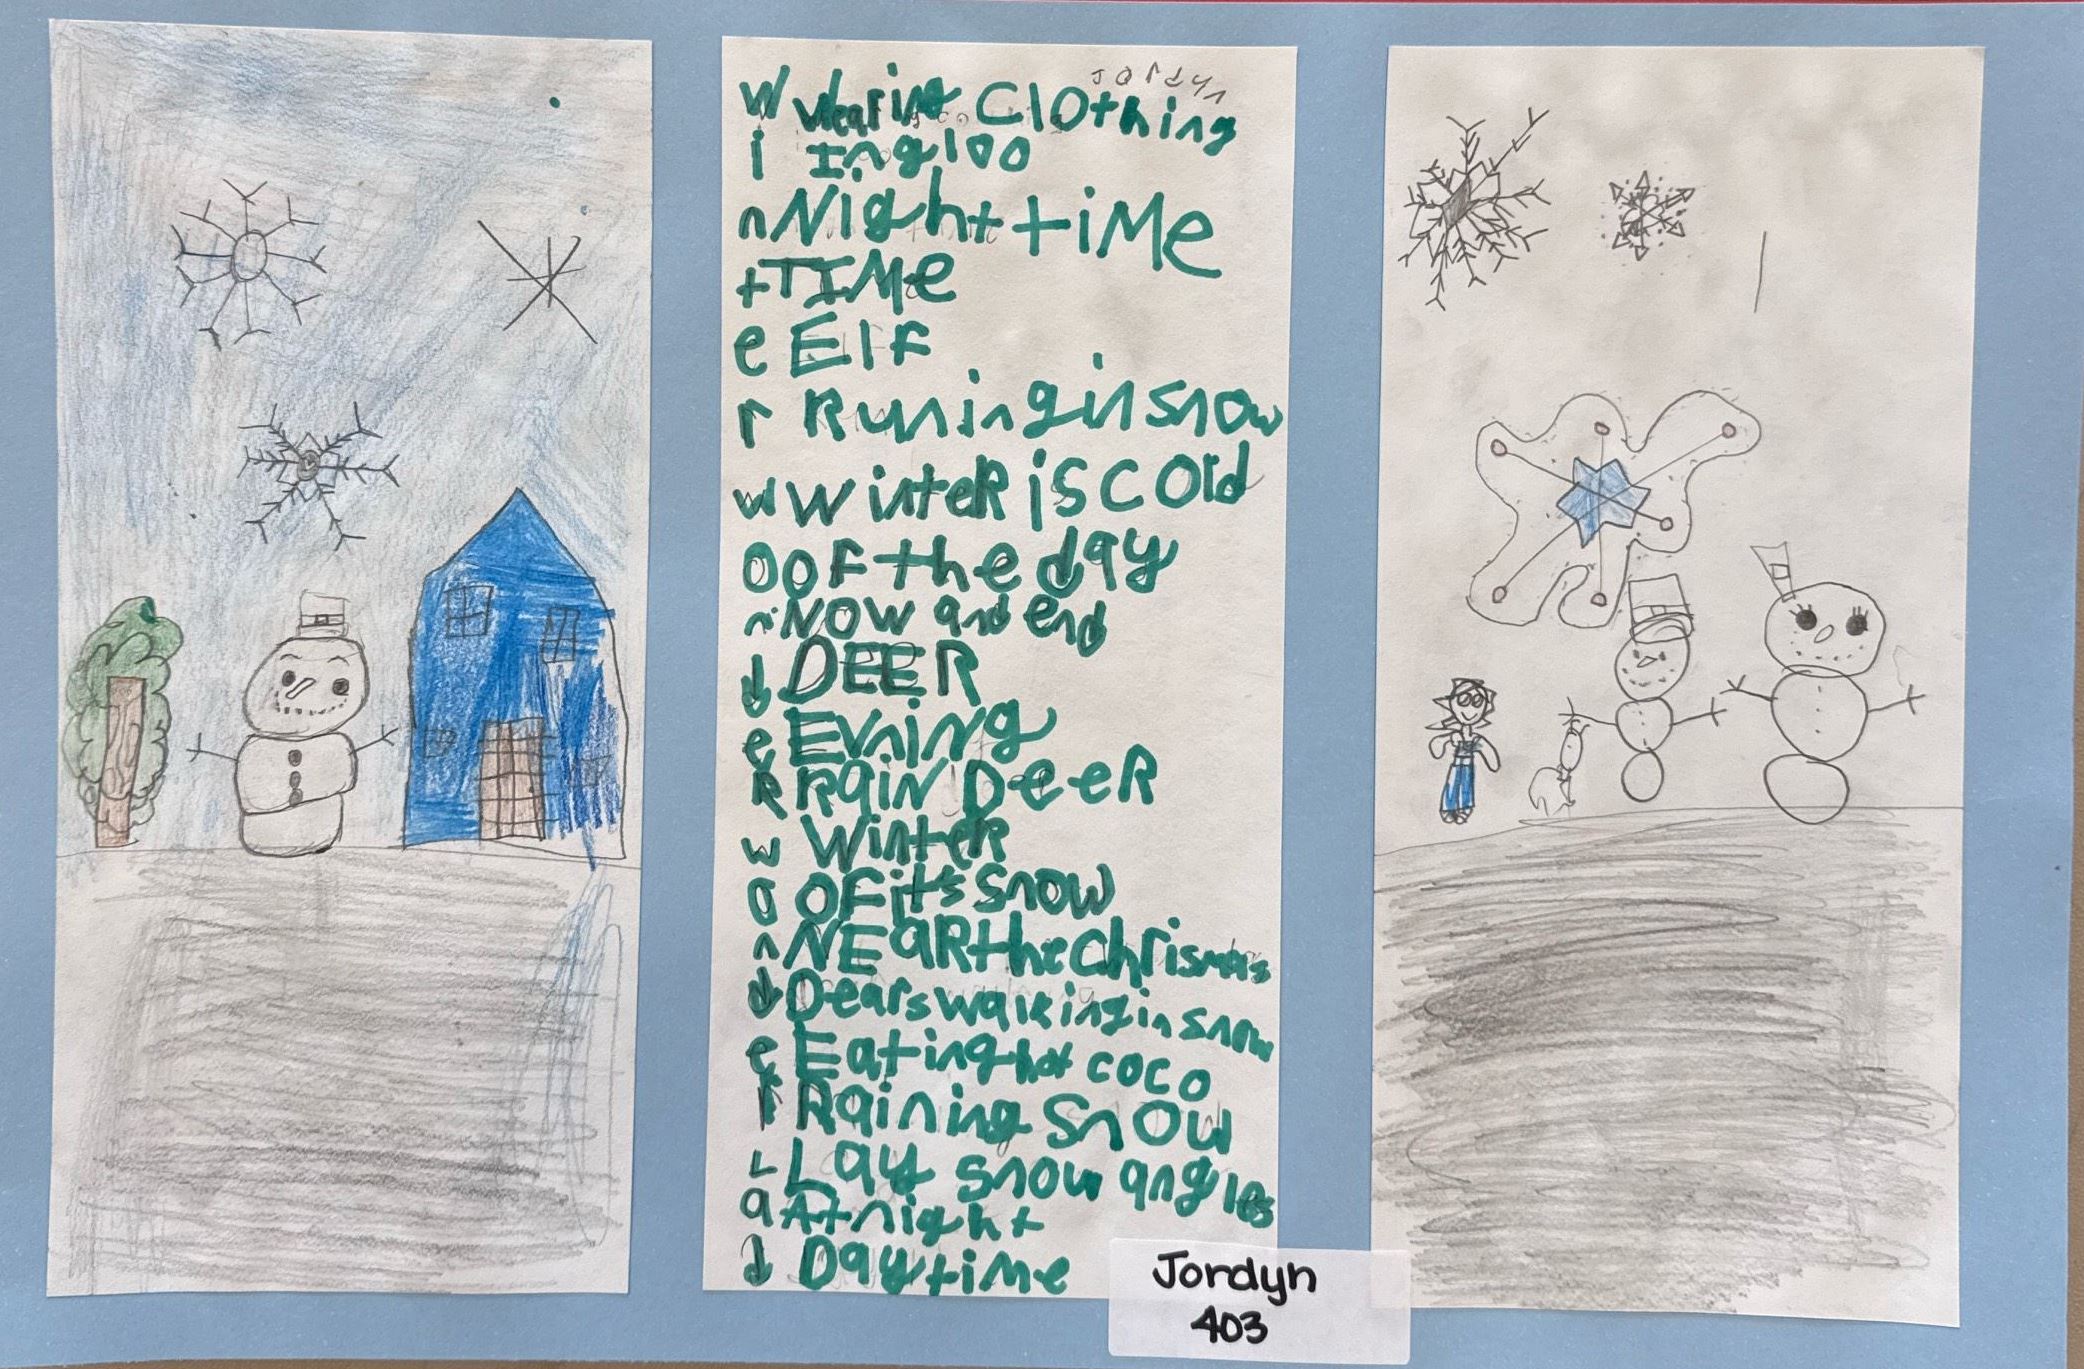 Jordyn
w Wearing Clothing
i Ingloo
n Night tiMe
t TIMe
e Elf
r Runing in snow
w winteR is cold
o of the day
n Now and end
d DEER
e Evning
R Rain DeeR
w WinteR
o OF it's snow
n NEaR the Chrismas
d Dears walking in snow
e Eating hot coco
r Raining Snow
L Lay snow angles
a At night
d Daytime
Jordyn
403